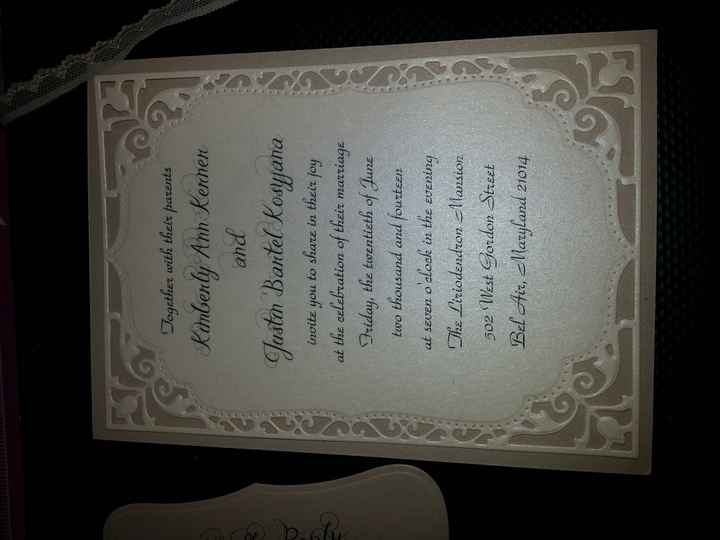 Together with their parents
Kimberly Ann Kenner
and
Justin Bantel Kosyjana
invite you to share in their joy
at the celebration of their marriage
Friday, the twentieth of June
two thousand and fourteen
at seven o'clock in the evening
The Liriodendron Mansion
502 West Gordon Street
Bel Air, Maryland 21014
Reply